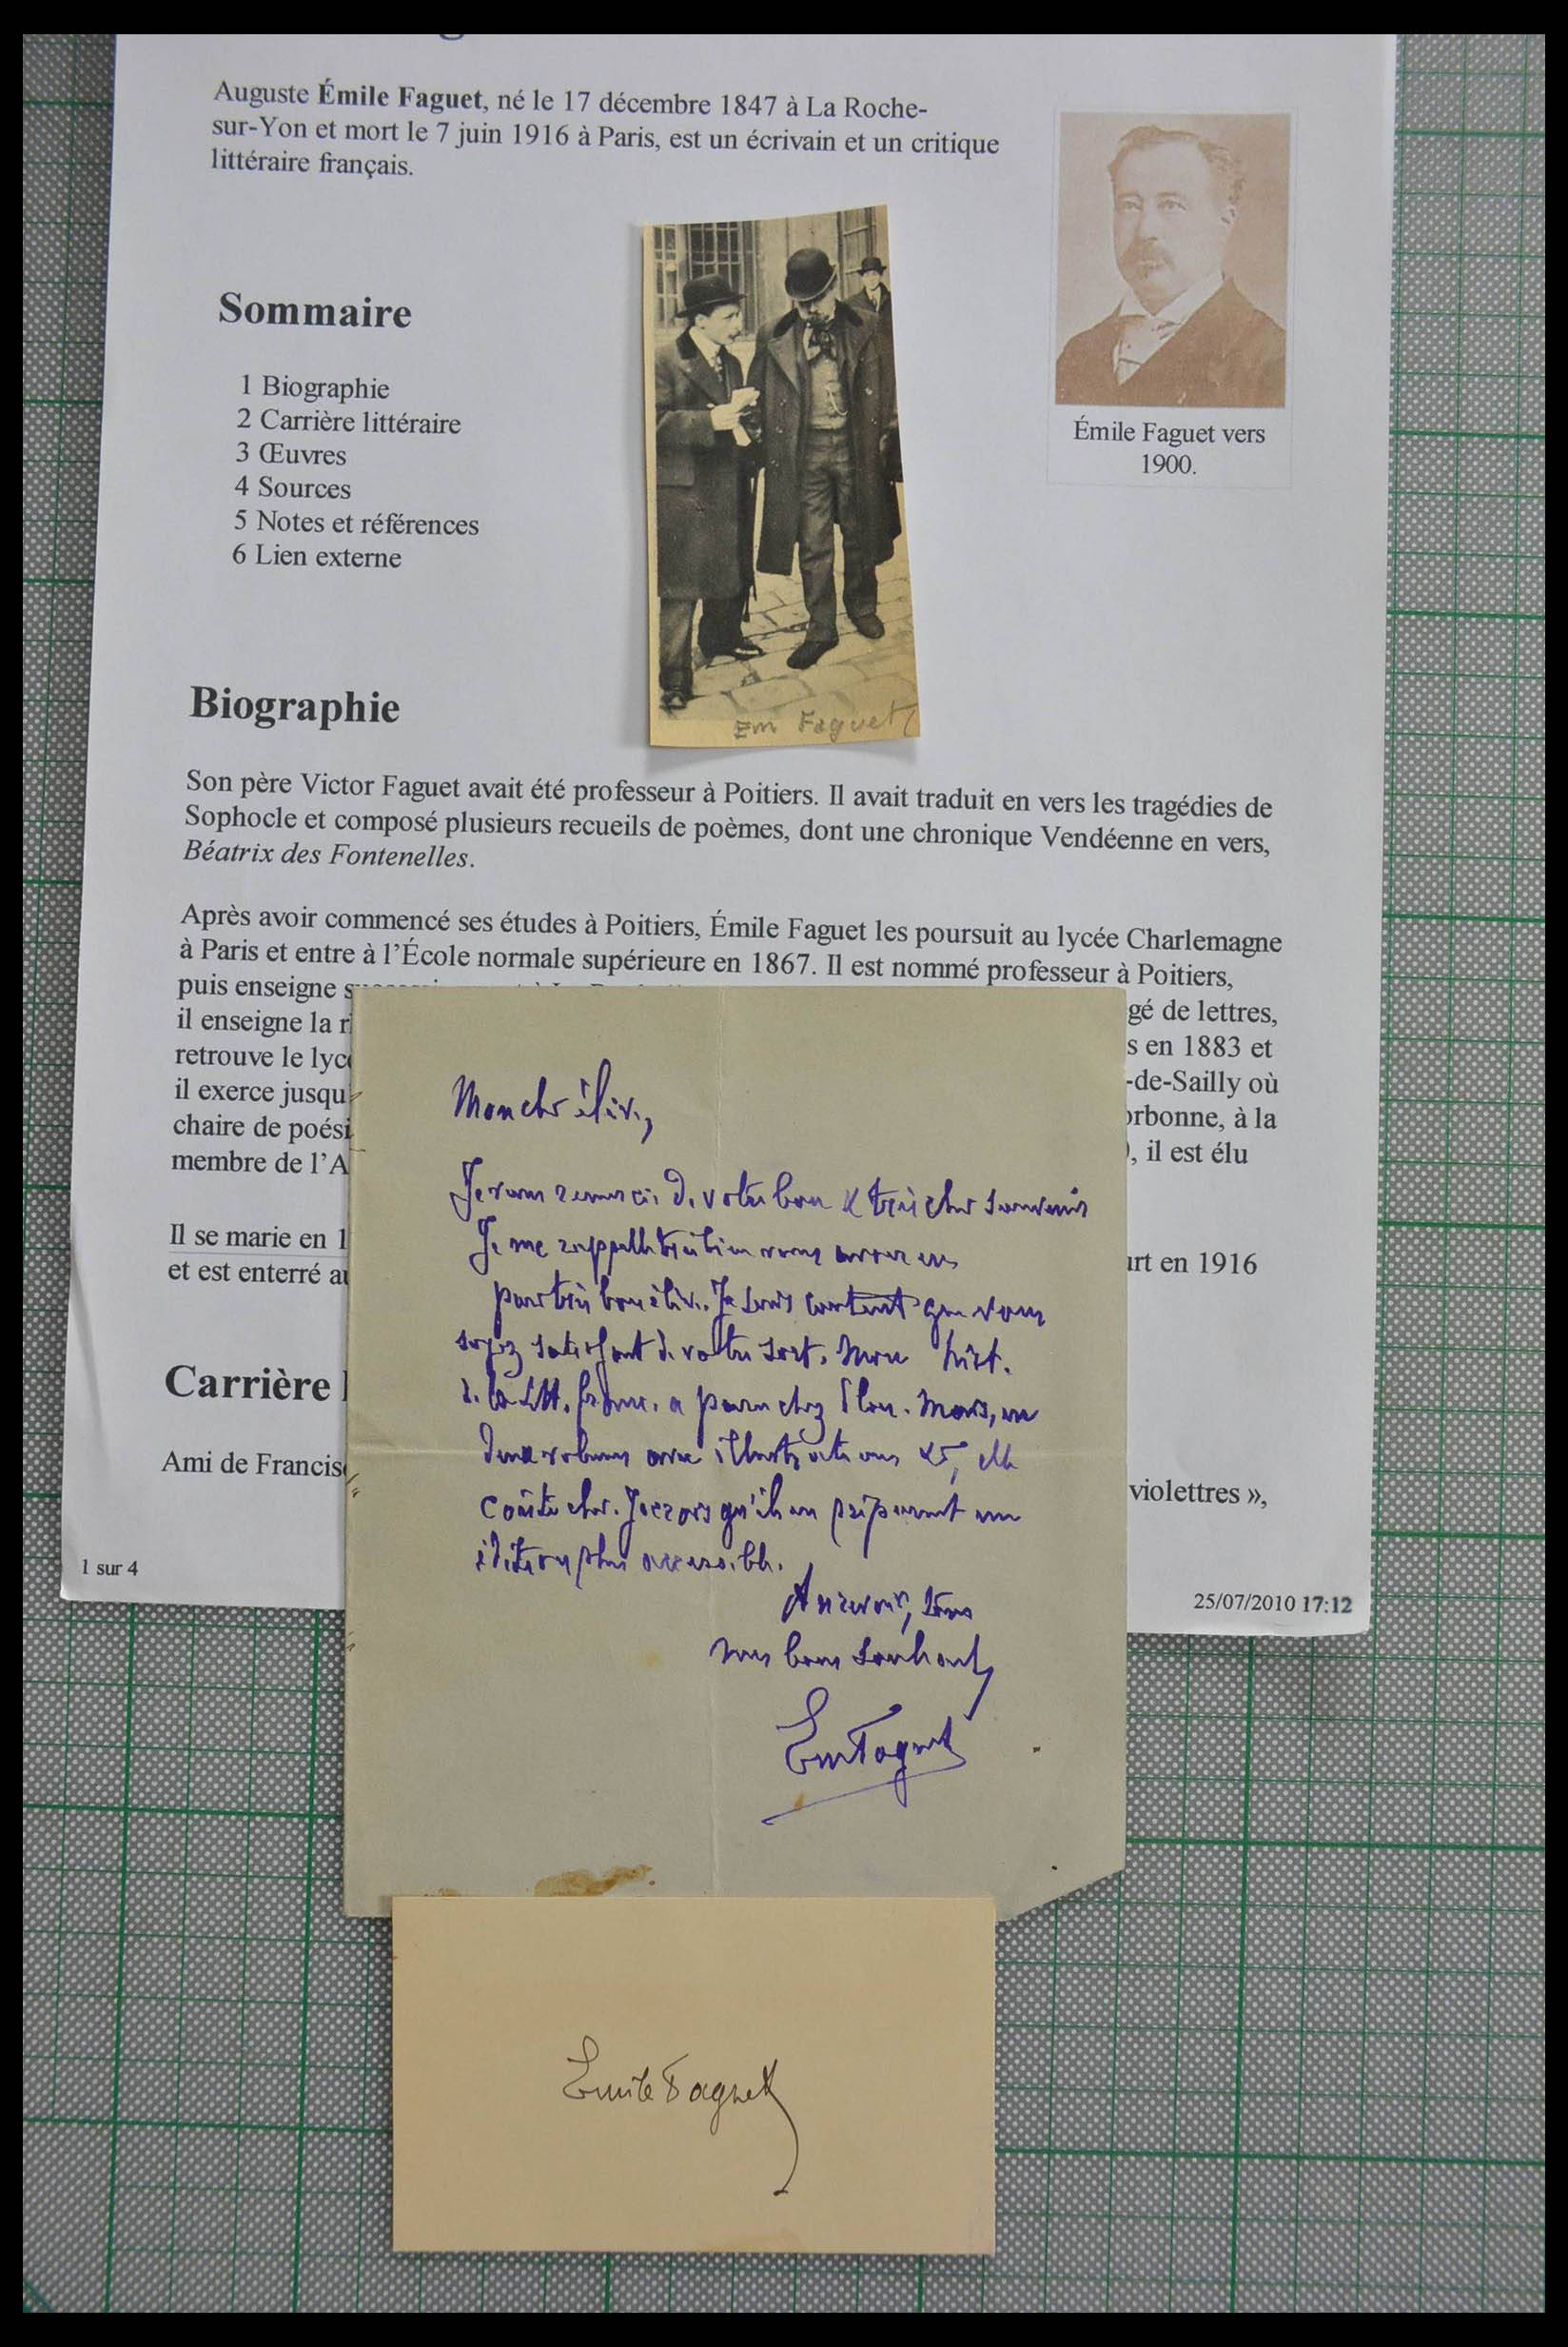 Auguste Émile Faguet, né le 17 décembre 1847 à La Roche-
sur-Yon et mort le 7 juin 1916 à Paris, est un écrivain et un critique
littéraire français.
Émile Faguet vers
1900.
Sommaire
1 Biographie
2 Carrière littéraire
3 Œuvres
4 Sources
5 Notes et références
6 Lien externe
Em Faguet
Biographie
Son père Victor Faguet avait été professeur à Poitiers. Il avait traduit en vers les tragédies de
Sophocle et composé plusieurs recueils de poèmes, dont une chronique Vendéenne en vers,
Béatrix des Fontenelles.
Après avoir commencé ses études à Poitiers, Émile Faguet les poursuit au lycée Charlemagne
à Paris et entre à l'École normale supérieure en 1867. Il est nommé professeur à Poitiers,
puis enseigne
il enseigne la gé de lettres,
retrouve le s en 1883 et
il exerce jusqu -de-Sailly où
chaire de orbonne, à la
membre de l'A , il est élu
Il se marie en 1
et est enterré urt en 1916
Carrière
Ami de violettres »,
1 sur 4
25/07/2010 17:12
Mon cher élève,
Je vous remercie de votre bon & très cher souvenir
Je me rappelle très bien vous avoir eu
pour très bon élève. Je suis content que vous
soyez satisfait de votre sort. Mon hist.
de la litt. franç. a paru chez Plon. Mais, en
deux volumes avec illustrations &, elle
coûte cher. Je crois qu'ils en préparent une
édition plus accessible.
Au revoir, tous
mes bons souhaits
Em Faguet
Emile Faguet